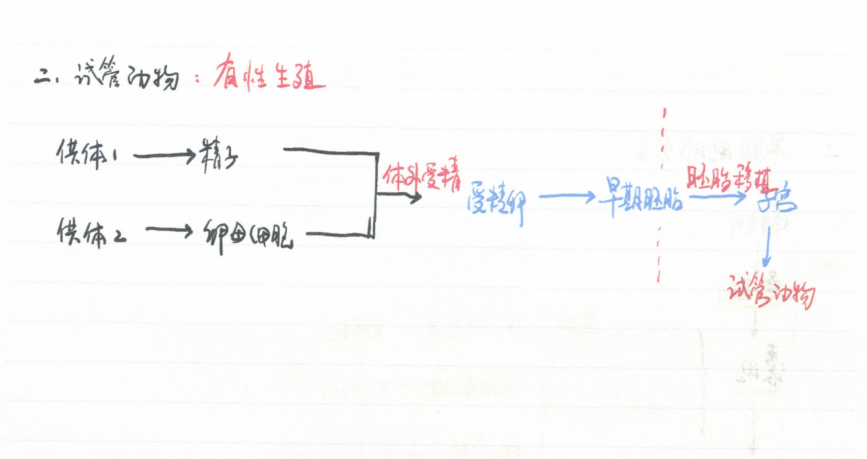 二、试管动物：有性生殖
供体1 → 精子
体外受精
受精卵 → 早期胚胎
胚胎移植
→ 子宫
供体2 → 卵母细胞
试管动物